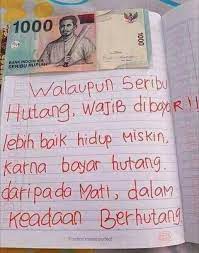 1000
BANK INDONESIA
SERIBU RUPIAH
1000
Walaupun Seribu
Hutang, wajib dibayaR!!
lebih baik hidup Miskin,
karna bayar hutang.
daripada Mati, dalam
keadaan Berhutang